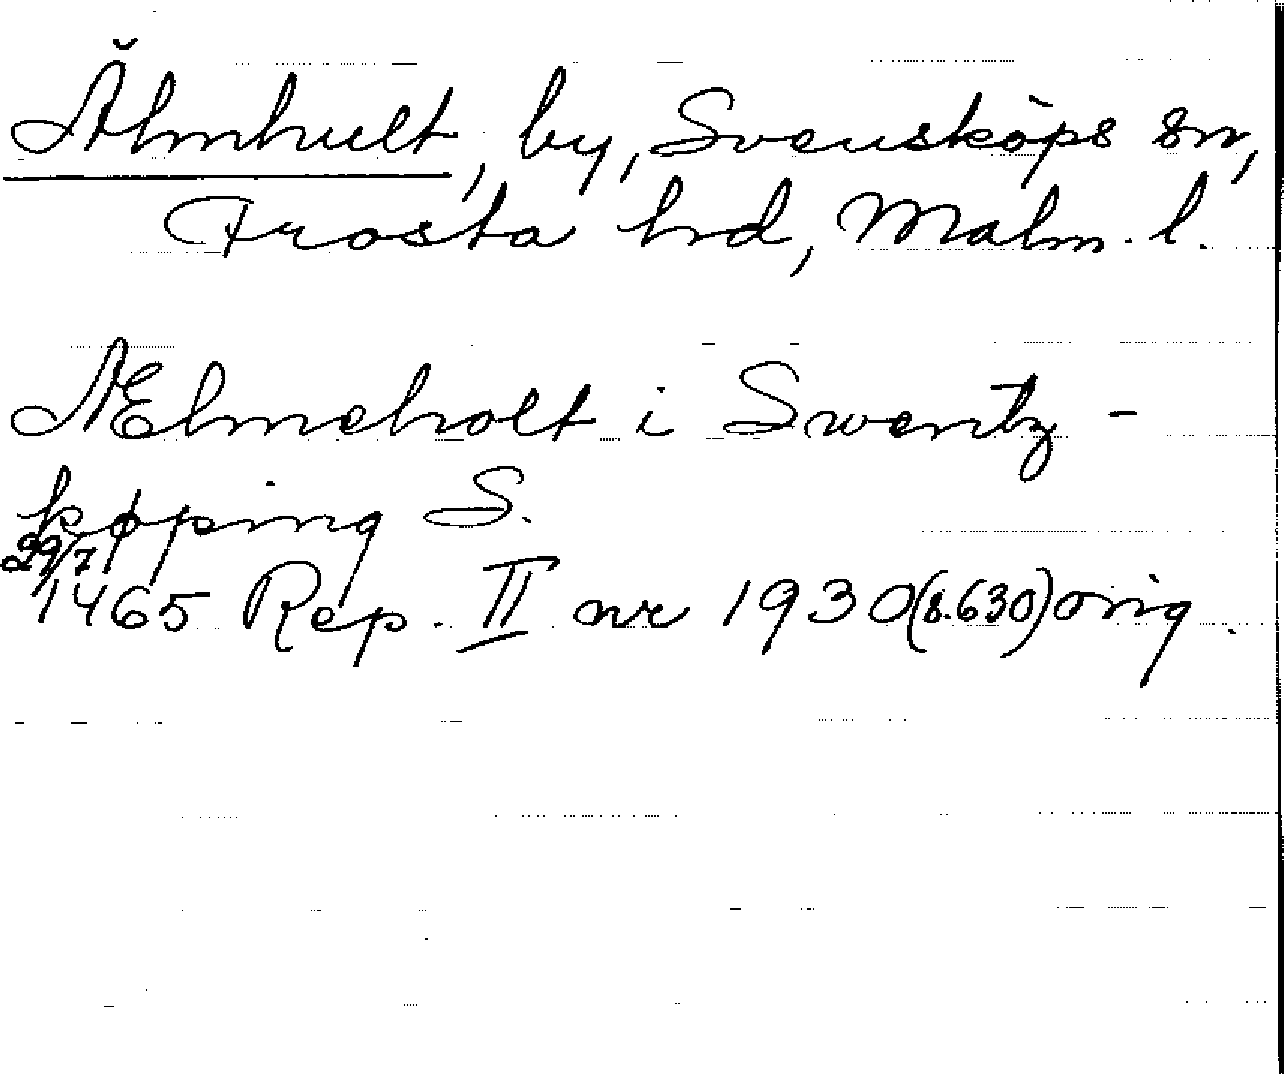 Älmhult, by, Svensköps sn,
Frosta hd, Malm. l.
Ælmeholt i Swentz-
køping S.
29/7
1465 Rep. II nr 1930 (s. 630) orig.